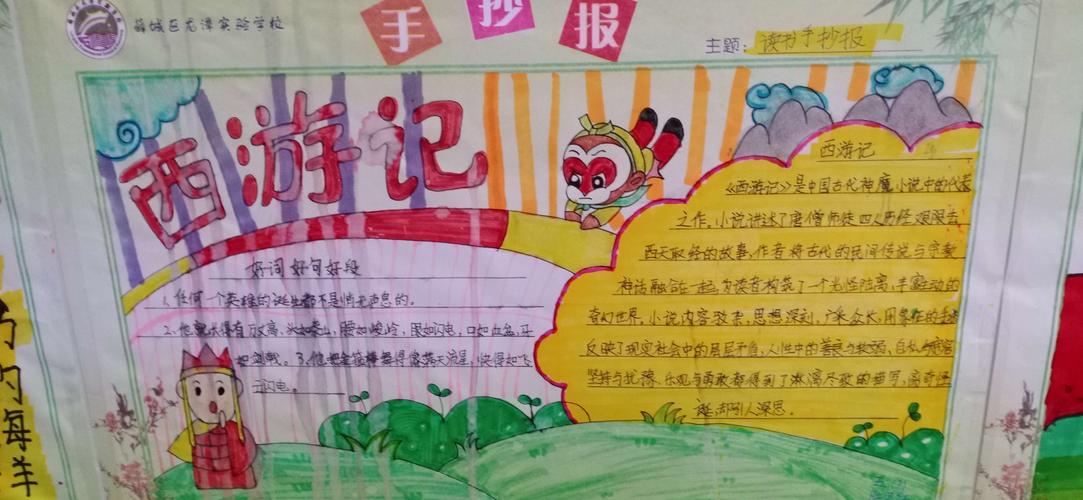 薛城区龙潭实验学校
手抄报
主题：读书手抄报
西游记
好词 好句 好段
1、任何一个英雄的诞生都不是悄无声息的。
2、他就长得有万丈高，头如泰山，腰如峻岭，眼如闪电，口如血盆，牙
如剑戟。3、他把金箍棒舞得像满天流星，快得如飞
云闪电。
西游记
《西游记》是中国古代神魔小说中的代表
之作。小说讲述了唐僧师徒四人历经艰险去
西天取经的故事，作者将古代的民间传说与宗教
神话融合在一起，为读者构筑了一个光怪陆离，丰富生动的
奇幻世界。小说内容驳杂，思想深刻，广采众长，用象征的手法
反映了现实社会中的层层矛盾，人性中的善良与软弱、自私与宽容
坚持与犹豫、乐观与勇敢都得到了淋漓尽致的描写，离奇怪
诞，却引人深思。
的海洋